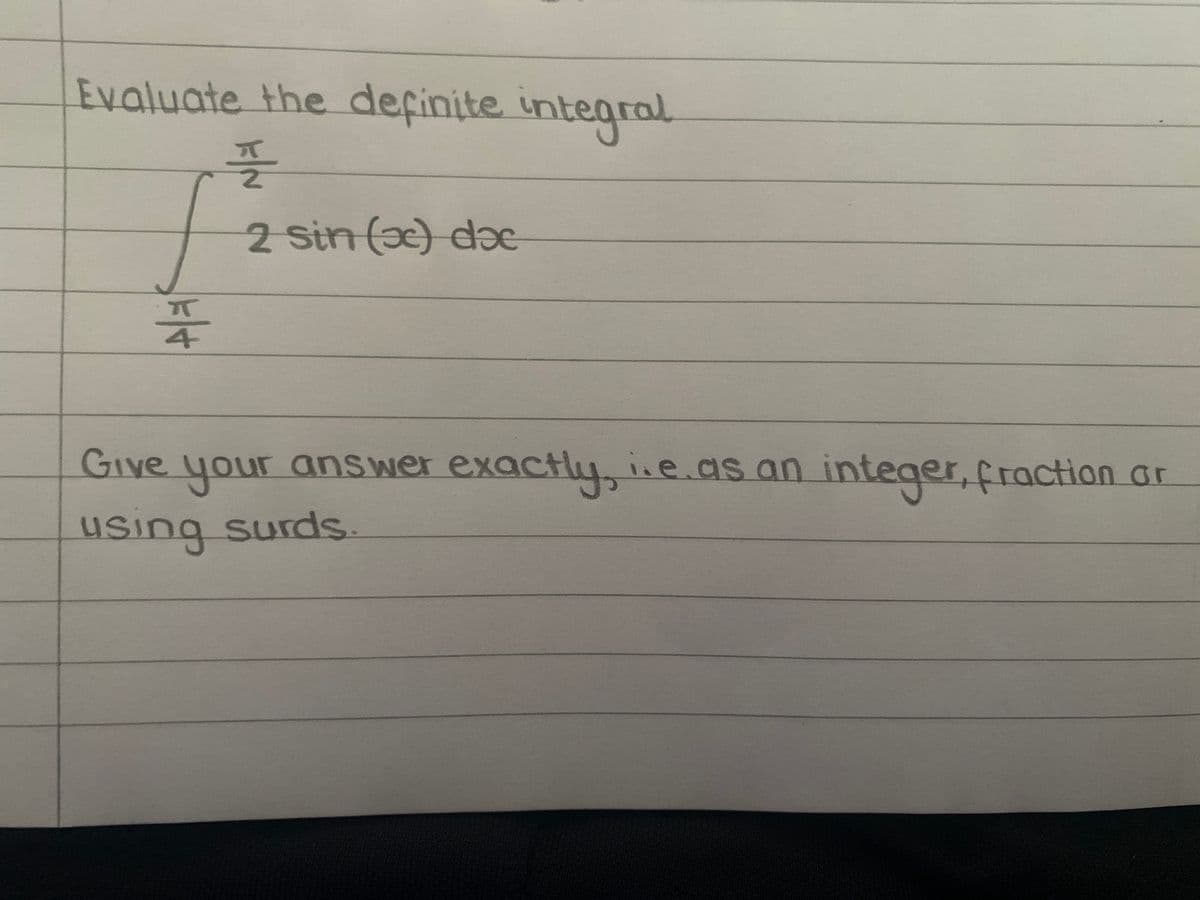 Evaluate the definite integral
π/2
∫ 2 sin(x) dx
π/4
Give your answer exactly, i.e. as an integer, fraction or
using surds.